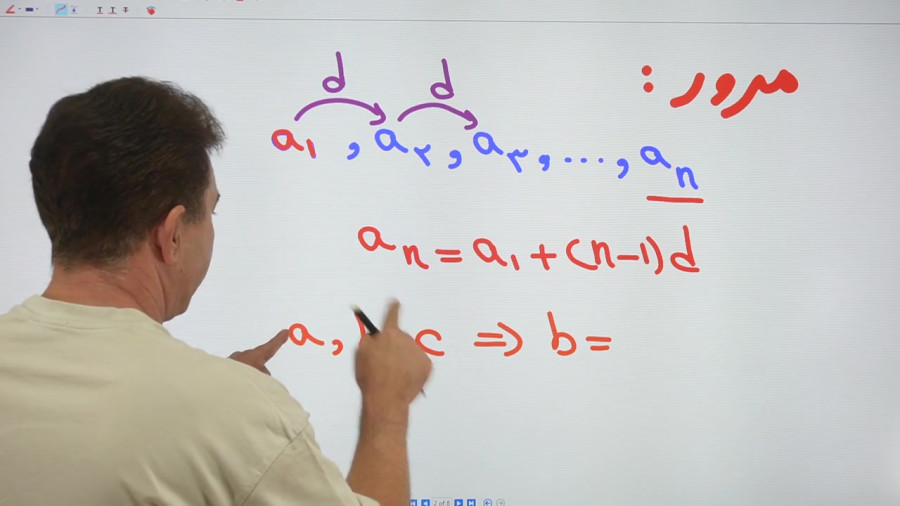 مرور :
d d
a₁ , a₂ , a₃ , ... , aₙ
aₙ = a₁ + (n-1)d
a, c ⇒ b =
2 of 8